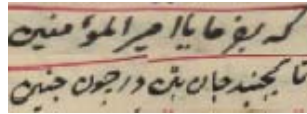 که بفرما یا امیر المؤمنین
تا بجنبد جان بتن در چون جنین